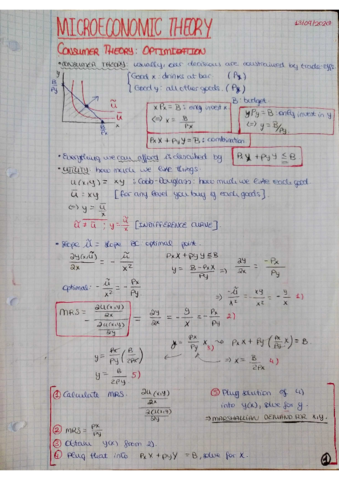 MICROECONOMIC THEORY
CONSUMER THEORY: OPTIMIZATION
• CONSUMER THEORY: usually our decisions are constrained by trade-offs
Good x: drinks at bar. (Px)
Good y: all other goods. (Py)
B: budget
y
B/Py
ũ
ũ
B/Px
x
xPx = B: only invest x
⟺ x = B/Px
yPy = B: only invest in y
⟺ y = B/Py
PxX + PyY = B: combination
• Everything we can afford is described by PxX + PyY ≤ B
• Utility: how much we like things
u(x,y) = xy : Cobb-Douglass: how much we like each good.
ũ = xy [For any level you buy of each goods]
⟺ y = ũ/x
: y = ũ/x [INDIFFERENCE CURVE]
• Slope ũ = slope BC optimal point.
∂y(x,ũ)/∂x = - ũ/x²
PxX + PyY ≤ B
y = B-PxX/Py ⇒ ∂y/∂x = -Px/Py
Optimal: - ũ/x² = - Px/Py
⇒ -ũ/x² = -xy/x² = -y/x 1)
MRS = - ∂u(x,y)/∂x / ∂u(x,y)/∂y = ∂y/∂x = -y/x = -Px/Py 2)
y = Px/Py x 3) PxX + Py(Px/Py x) = B
⇒ x = B/2Px 4)
y = Px/Py (B/2Px)
y = B/2Py 5)
① Calculate MRS. ∂u(x,y)/∂x / ∂u(x,y)/∂y
② MRS = Px/Py
③ Obtain y(x) from 2).
④ Plug that into PxX + PyY = B, solve for x.
⑤ Plug solution of 4) into y(x), solve for y.
⇒ MARSHALLIAN DEMAND FOR X,Y.
1